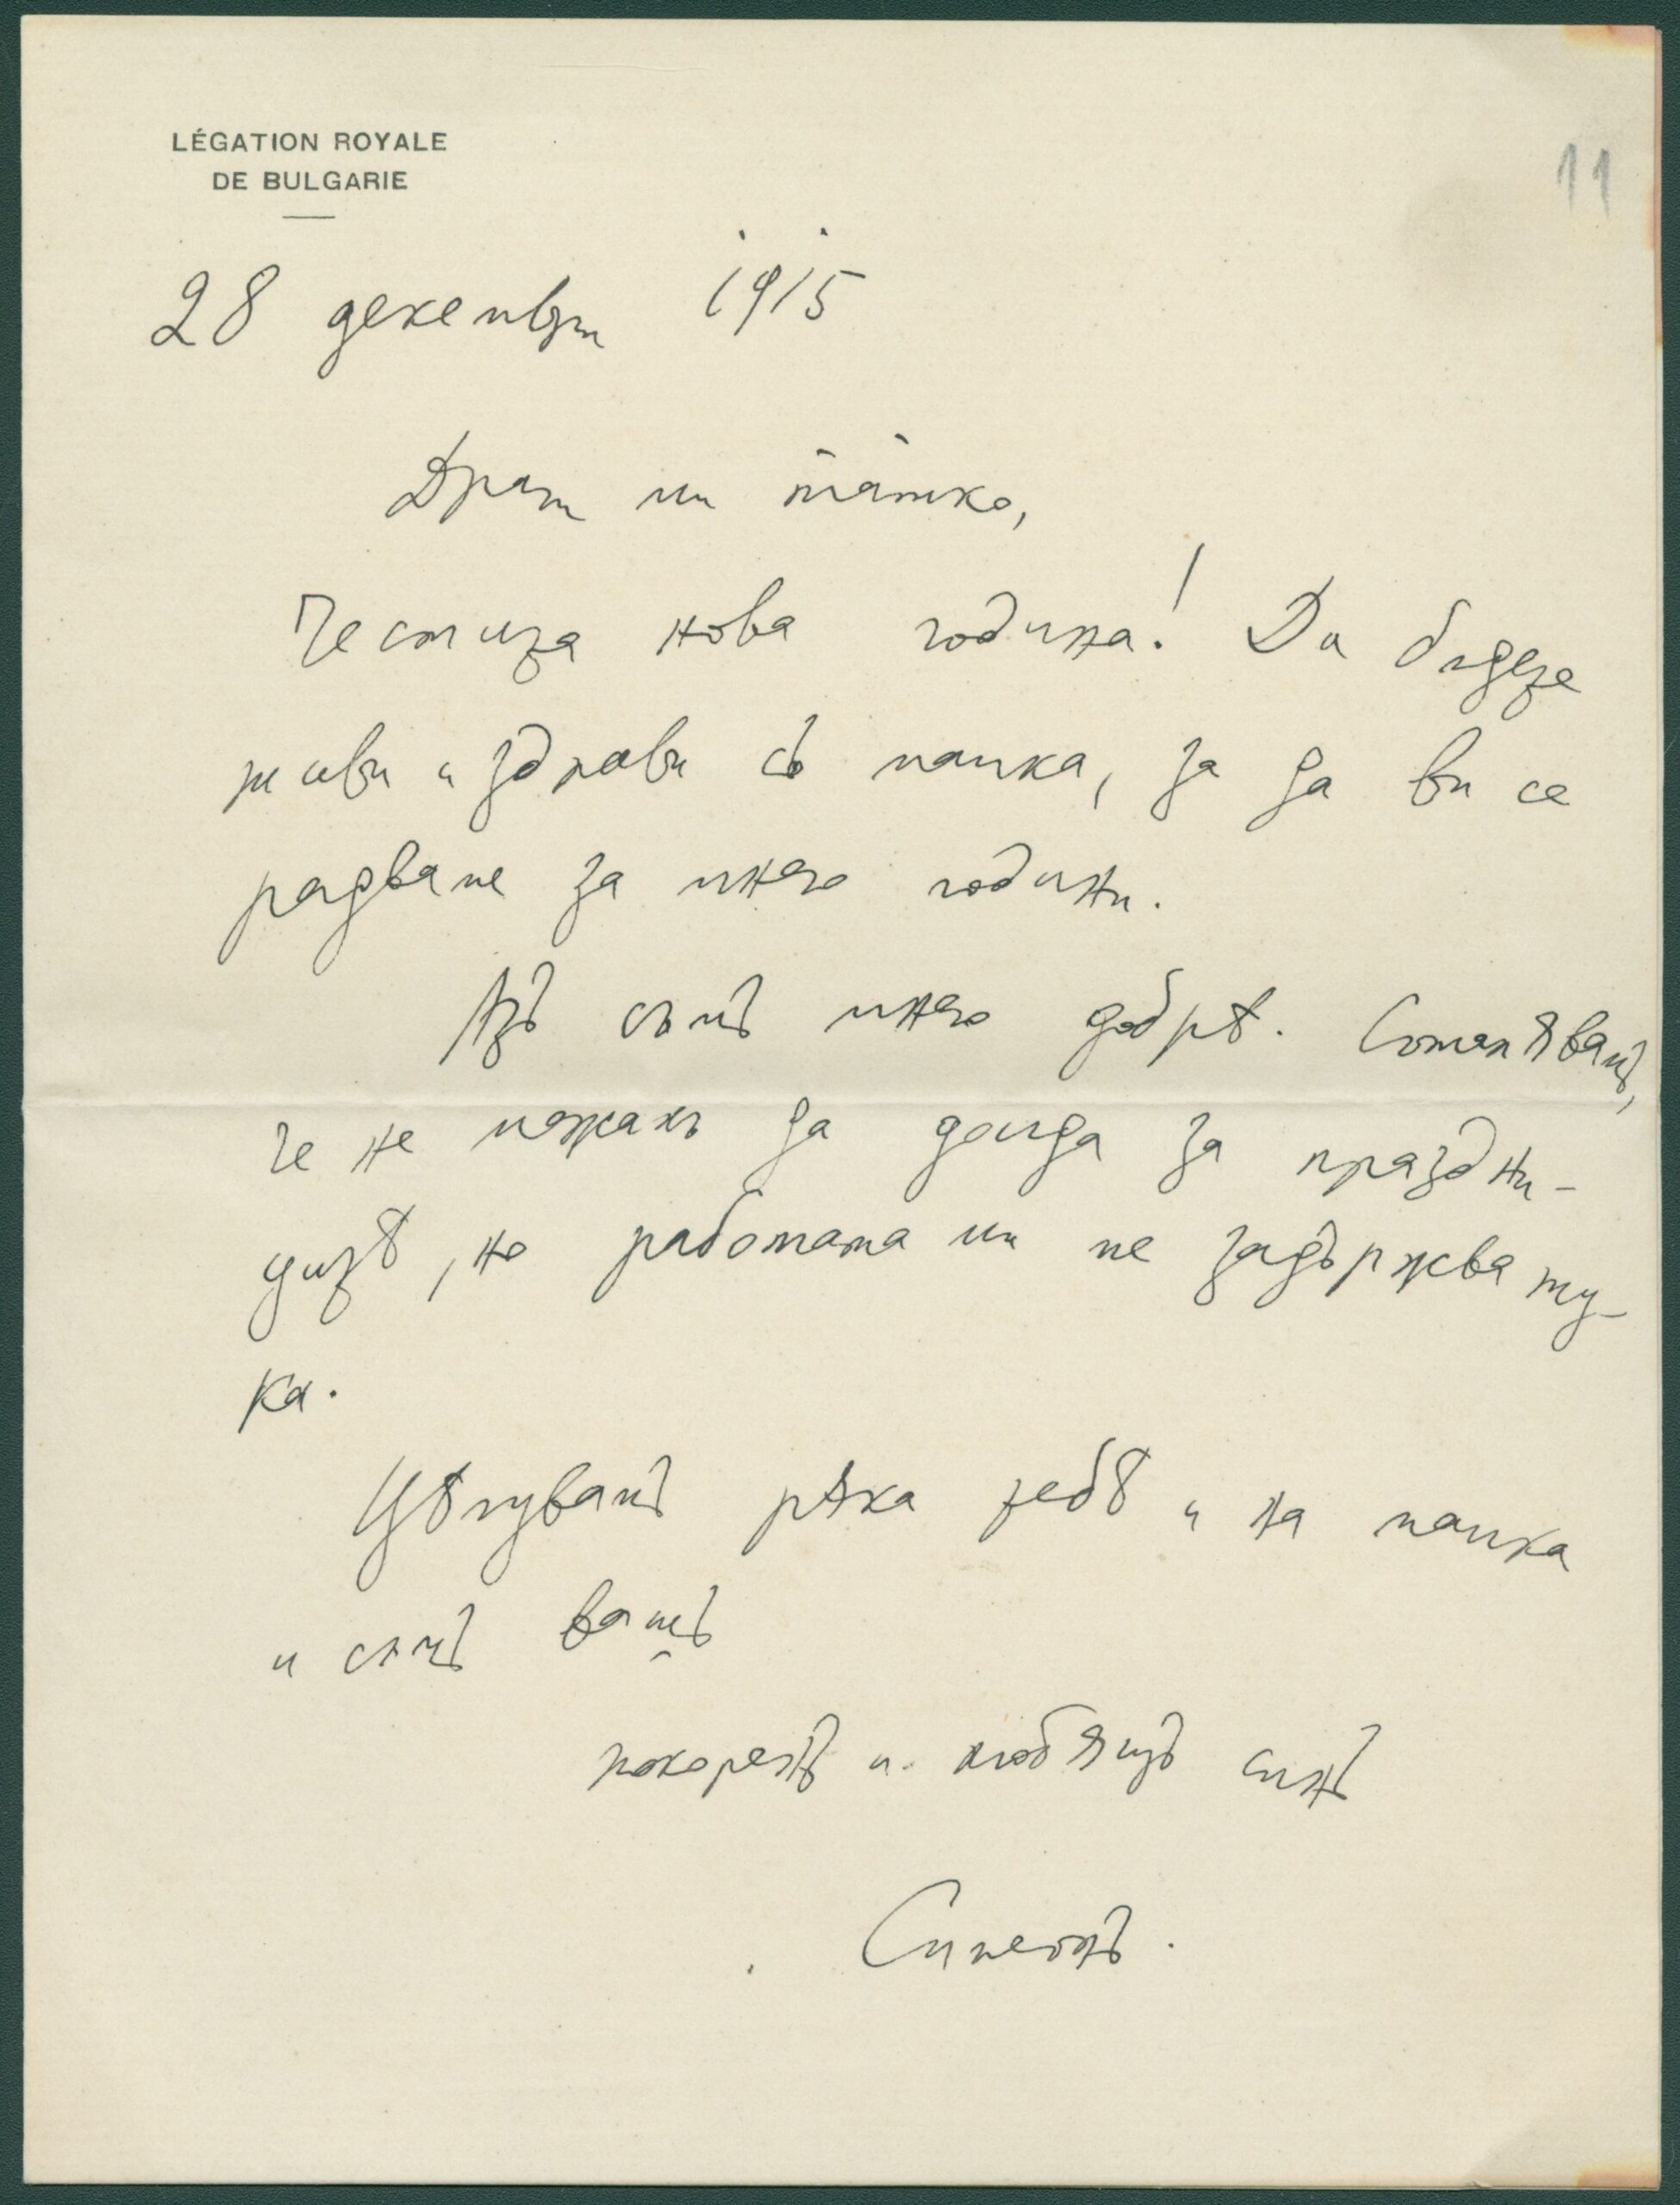 LÉGATION ROYALE
DE BULGARIE
11
28 декември 1915
Драги ми татко,
Честита нова година! Да бѫдете
живи и здрави съ мамка, за да ви се
радваме за много години.
Азъ съмъ много добрѣ. Съжалявамъ,
че не можахъ да дойда за праздни-
цитѣ, но работата ми ме задържва ту-
ка.
Цѣлувамъ рѫка тебѣ и на мамка
и съмъ вашъ
покоренъ и любящъ синъ
Симеонъ.